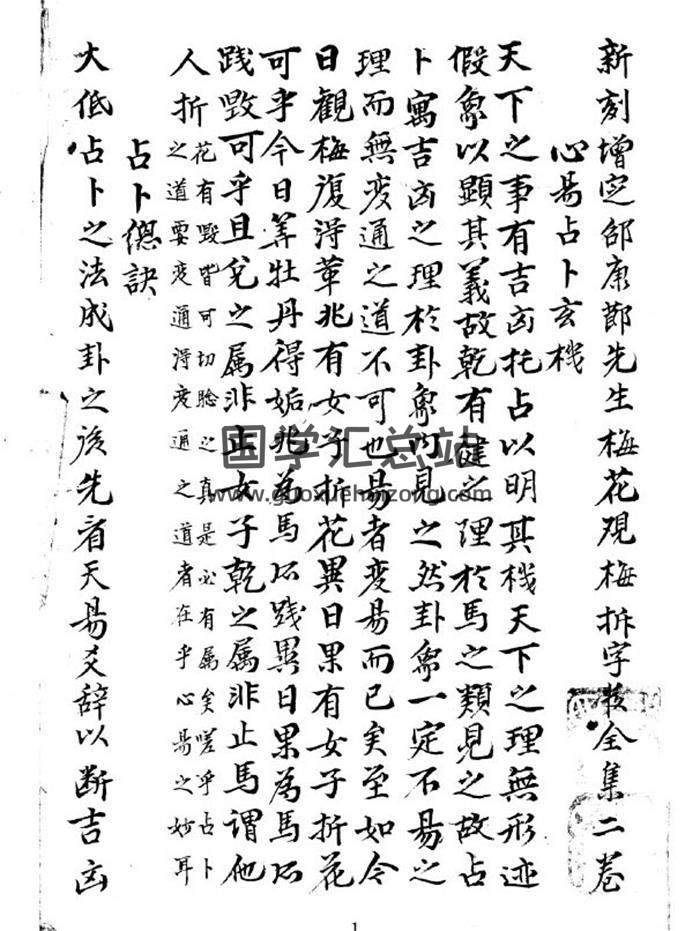 新刻增定邵康節先生梅花观梅拆字數全集二卷
心易占卜玄機
天下之事有吉凶托占以明其機天下之理無形迹
假象以顯其義故乾有健之理於馬之類見之故占
卜寓吉凶之理於卦象內見之然卦象一定不易之
理而無变通之道不可也易者变易而已矣至如今
日觀梅復淂革兆有女子折花異日果有女子折花
可乎今日筭牡丹得姤兆為馬所践異日果為馬所
践毀可乎且兌之属非止女子乾之属非止馬謂他
人折花有毀皆可切驗之真是必有属矣嗟乎占卜
之道要变通淂变通之道者在乎心易之妙耳
占卜總訣
大低占卜之法成卦之後先看天易爻辞以断吉凶
国学汇总站
www.guoxuehuizong.com
1